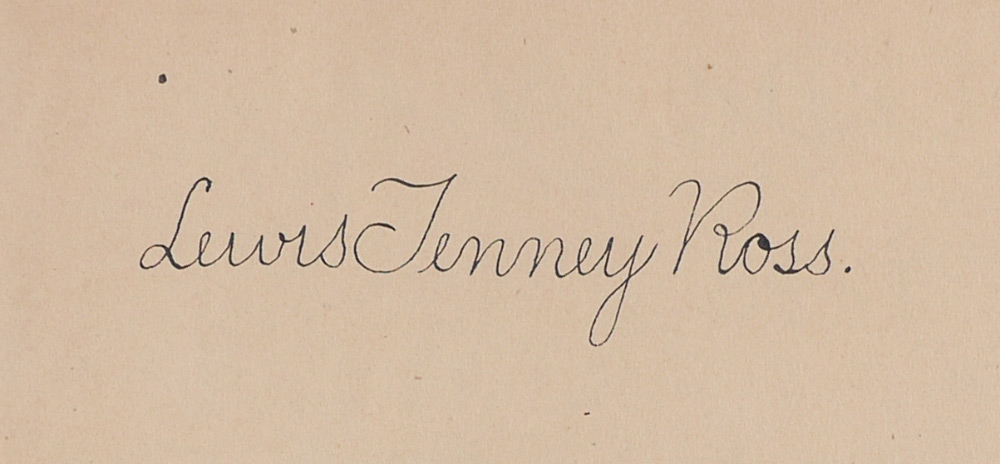 Lewis Tenney Ross.